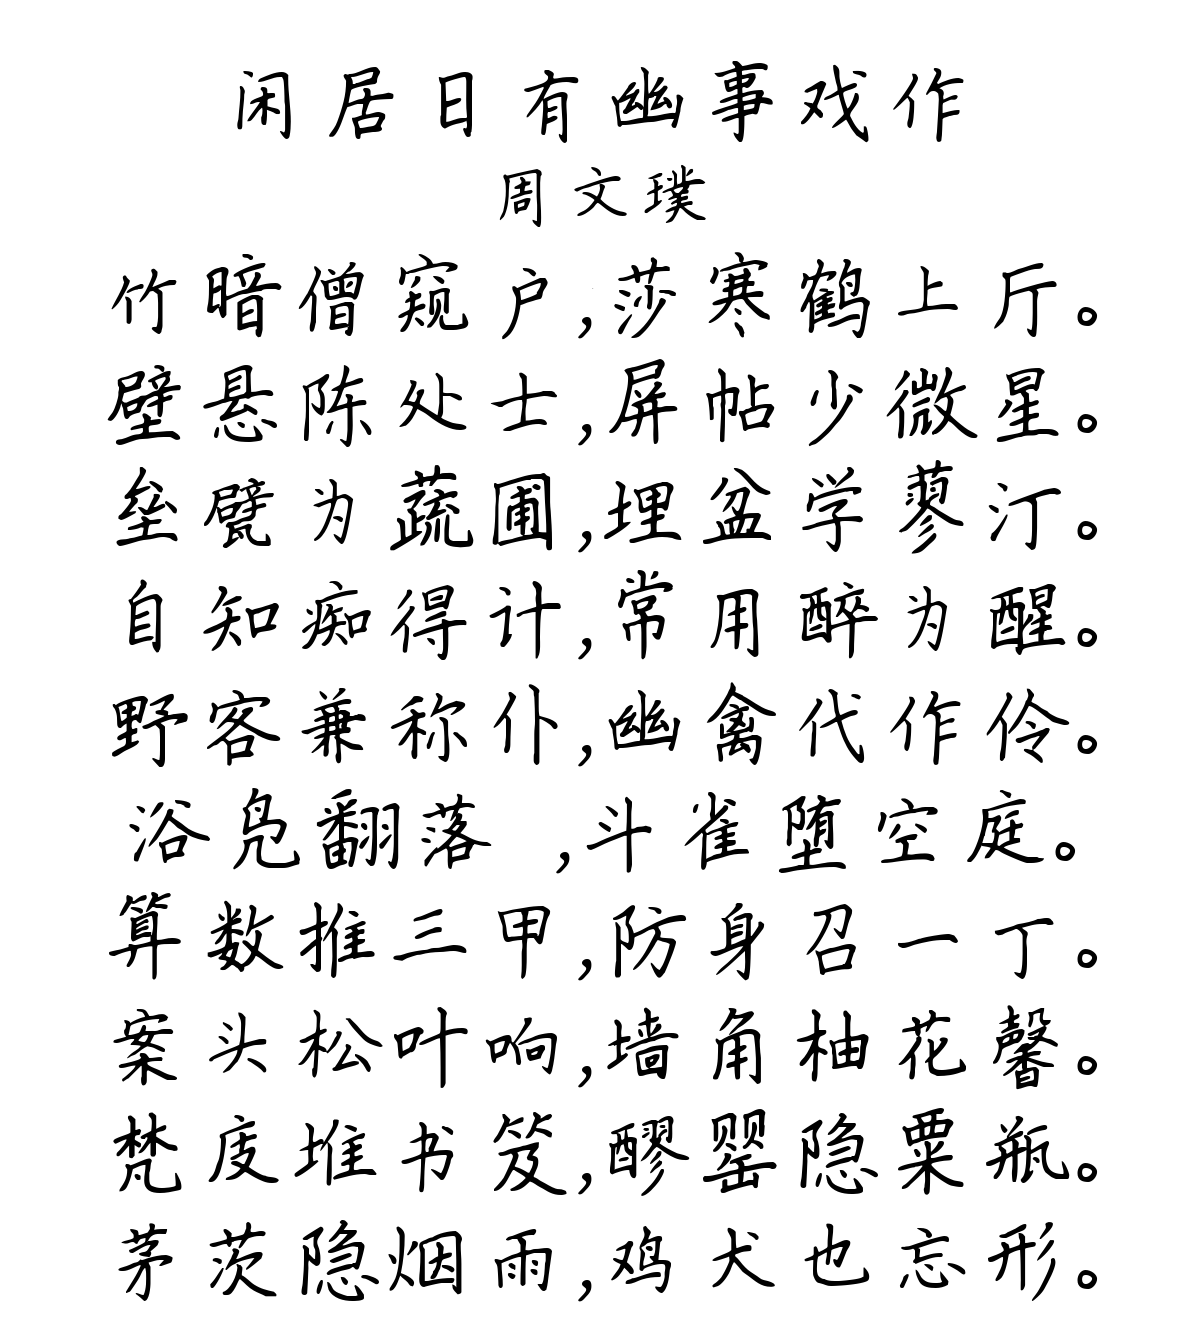 闲居日有幽事戏作
周文璞
竹暗僧窥户,莎寒鹤上厅。
壁悬陈处士,屏帖少微星。
垒甓为蔬圃,埋盆学蓼汀。
自知痴得计,常用醉为醒。
野客兼称仆,幽禽代作伶。
浴凫翻落 ,斗雀堕空庭。
算数推三甲,防身召一丁。
案头松叶响,墙角柚花馨。
梵庋堆书笈,醪罂隐粟瓶。
茅茨隐烟雨,鸡犬也忘形。